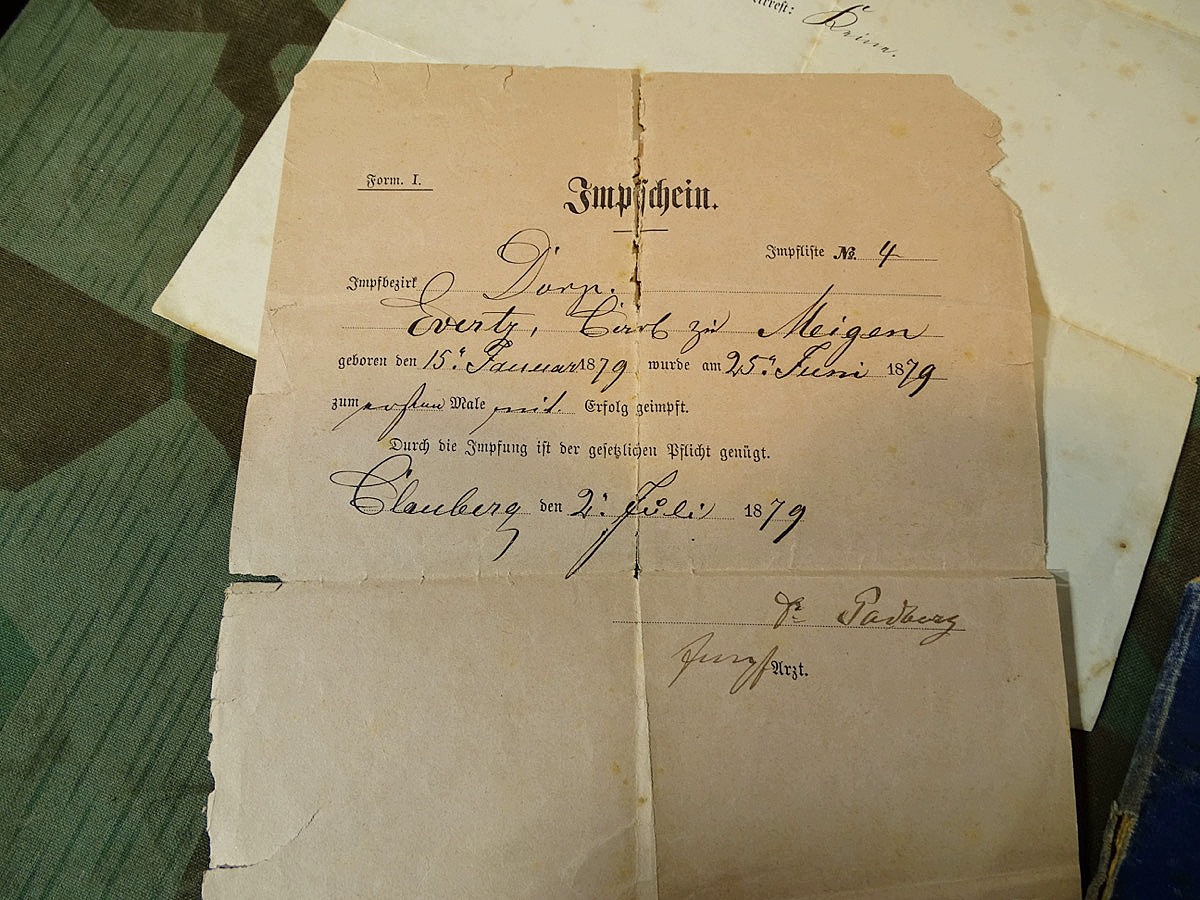 Arrest: Keine.
Form. I.
Impfschein.
Impfliste No. 4
Impfbezirk Dorp.
Evertz, Carl zu Meigen
geboren den 15. Januar 1879 wurde am 25. Juni 1879
zum ersten Male mit Erfolg geimpft.
Durch die Impfung ist der gesetzlichen Pflicht genügt.
Clauberg den 2. Juli 1879
Dr Padberg
Impf Arzt.